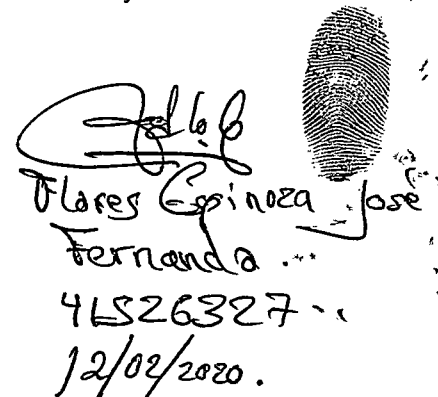 Flores Espinoza José
Fernando.
41526327
12/02/2020.